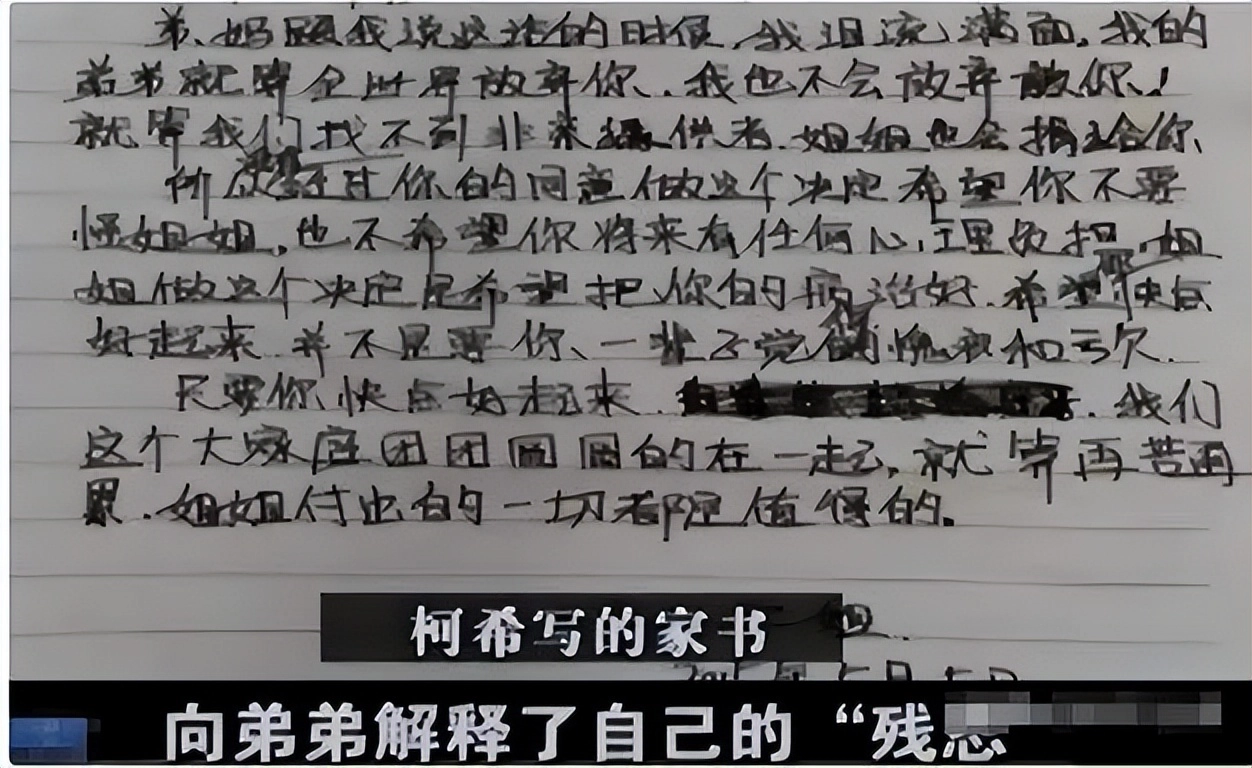 弟、妈跟我说这话的时候,我泪流满面,我的
弟弟就算全世界放弃你、我也不会放弃你!
就算我们找不到非亲提供者.姐姐也会捐给你、
所以 经过你的同意做这个决定希望你不要
怪姐姐,也不希望你将来有任何心理负担,姐
姐做这个决定是希望把你的病治好.希望你快点
好起来.并不是要你、一辈子觉得愧疚和亏欠.
只要你快点好起来. 我们
这个大家庭团团圆圆的在一起,就算再苦再
累.姐姐付出的一切都是值得的.
柯希写的家书
向弟弟解释了自己的“残忍